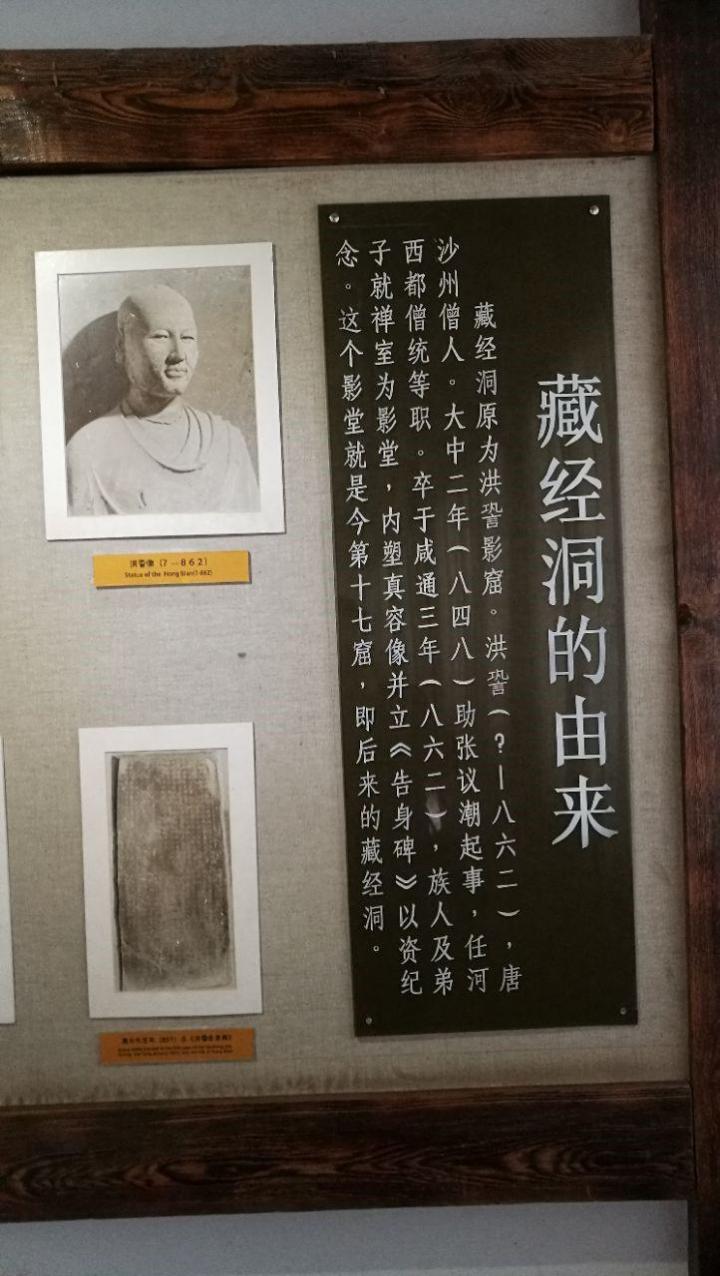 藏经洞的由来
藏经洞原为洪䛒影窟。洪䛒(?—八六二),唐
沙州僧人。大中二年(八四八)助张议潮起事,任河
西都僧统等职。卒于咸通三年(八六二),族人及弟
子就禅室为影堂,内塑真容像并立《告身碑》以资纪
念。这个影堂就是今第十七窟,即后来的藏经洞。
洪䛒像(?—862)
Statue of the Hong Bian(?-862)